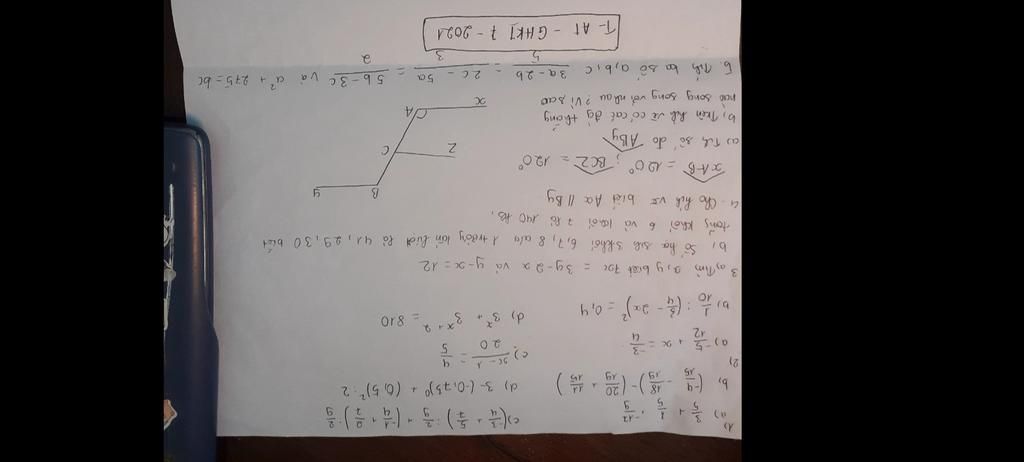 1)
a) 3/5 + 1/5 · -12/9
c) (-3/4 + 5/7) : 2/9 + (-1/4 + 2/7) : 2/9
b) (-4/15 - 18/19) - (20/19 + 11/15)
d) 3 - (-0,75)⁰ + (0,5)² : 2
2)
a) -5/12 + x = -3/4
c) x-1/20 = 4/5
b) 1/10 : (3/4 - 2x)² = 0,4
d) 3ˣ + 3ˣ⁺² = 810
3 a, Tìm x, y biết 7x = 3y - 2x và y - x = 12
b, Số học sinh 3 khối 6, 7, 8 của 1 trường lần lượt tỉ lệ 41, 29, 30 biết
tổng khối 6 và khối 7 là 140 hs.
4. Cho hình vẽ biết Ax // By
xAB = 120° ; BCZ = 120°
a) Tính số đo ABy
b, Trên hình vẽ có các đg thẳng
nào song song với nhau? Vì sao
y
B
C
Z
A
x
5. Tìm ba số a, b, c 3a-2b/5 = 2c-5a/3 = 5b-3c/2 và a² + 275 = bc
T-A1 - GHKI 7 - 2021